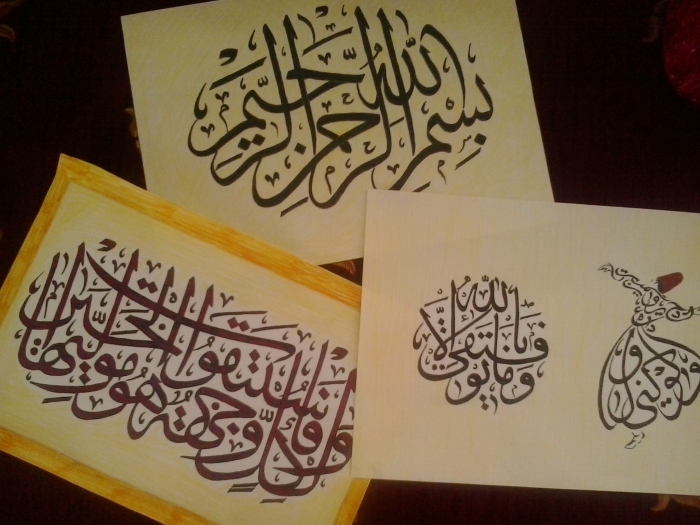 بِسْمِ اللهِ الرَّحْمٰنِ الرَّحِيْمِ
وَلِكُلٍّ وِجْهَةٌ هُوَ مُوَلِّيهَا فَاسْتَبِقُوا الْخَيْرَاتِ
وَمَا تَوْفِيقِي إِلَّا بِاللهِ